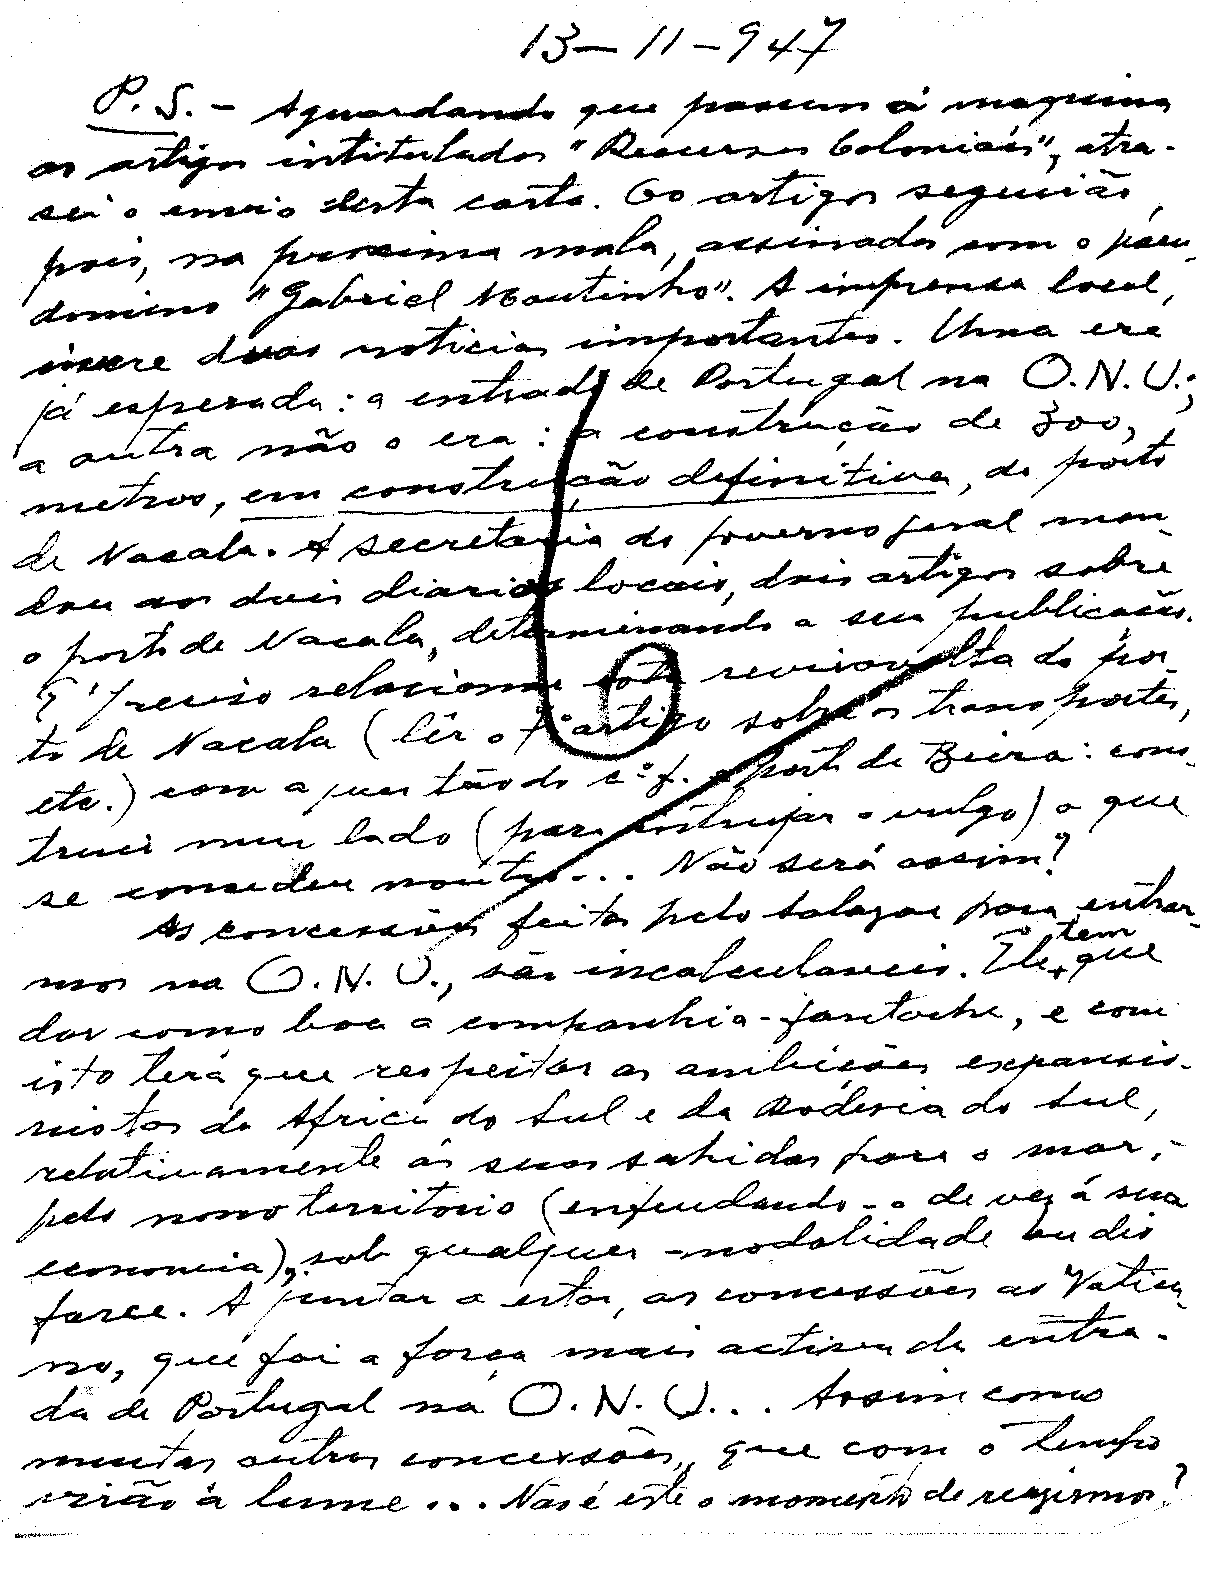 13-11-947
P. S. - Aguardando que passem á maquina
os artigos intitulados "Recursos Coloniais", atra-
sei o envio desta carta. Os artigos seguirão,
pois, na proxima mala, assinados com o pseu-
donimo "Gabriel Moutinho". A imprensa local,
insere duas noticias importantes. Uma era
já esperada: a entrada de Portugal na O.N.U.;
a outra não o era: a construção de 300,
metros, em construção definitiva, do porto
de Nacala. A secretaria do governo geral man-
dou aos dois diarios locais, dois artigos sobre
o porto de Nacala, determinando a sua publicação.
É preciso relacionar esta reviravolta do por-
to de Nacala (lêr o 1º artigo sobre os transportes,
etc.) com a questão do c.º f. e porto da Beira: cons-
truir num lado (para intrujar o vulgo) o que
se concedeu noutro... Não será assim?
As concessões feitas pelo Salazar para entrar-
mos na O.N.U., são incalculaveis. Ele tem que
dar como boa a companhia-fantoche, e com
isto terá que respeitar as ambições expansio-
nistas da Africa do Sul e da Rodesia do Sul,
relativamente ás suas sahidas para o mar,
pelo nosso territorio (enfeudando-o de vez á sua
economia), sob qualquer modalidade ou dis
farce. A juntar a estas, as concessões ao Vatica-
no, que foi a força mais activa da entra-
da de Portugal na O.N.U... Assim como
muitas outras concessões, que com o tempo
virão á lume... Não é este o momento de reagirmos?